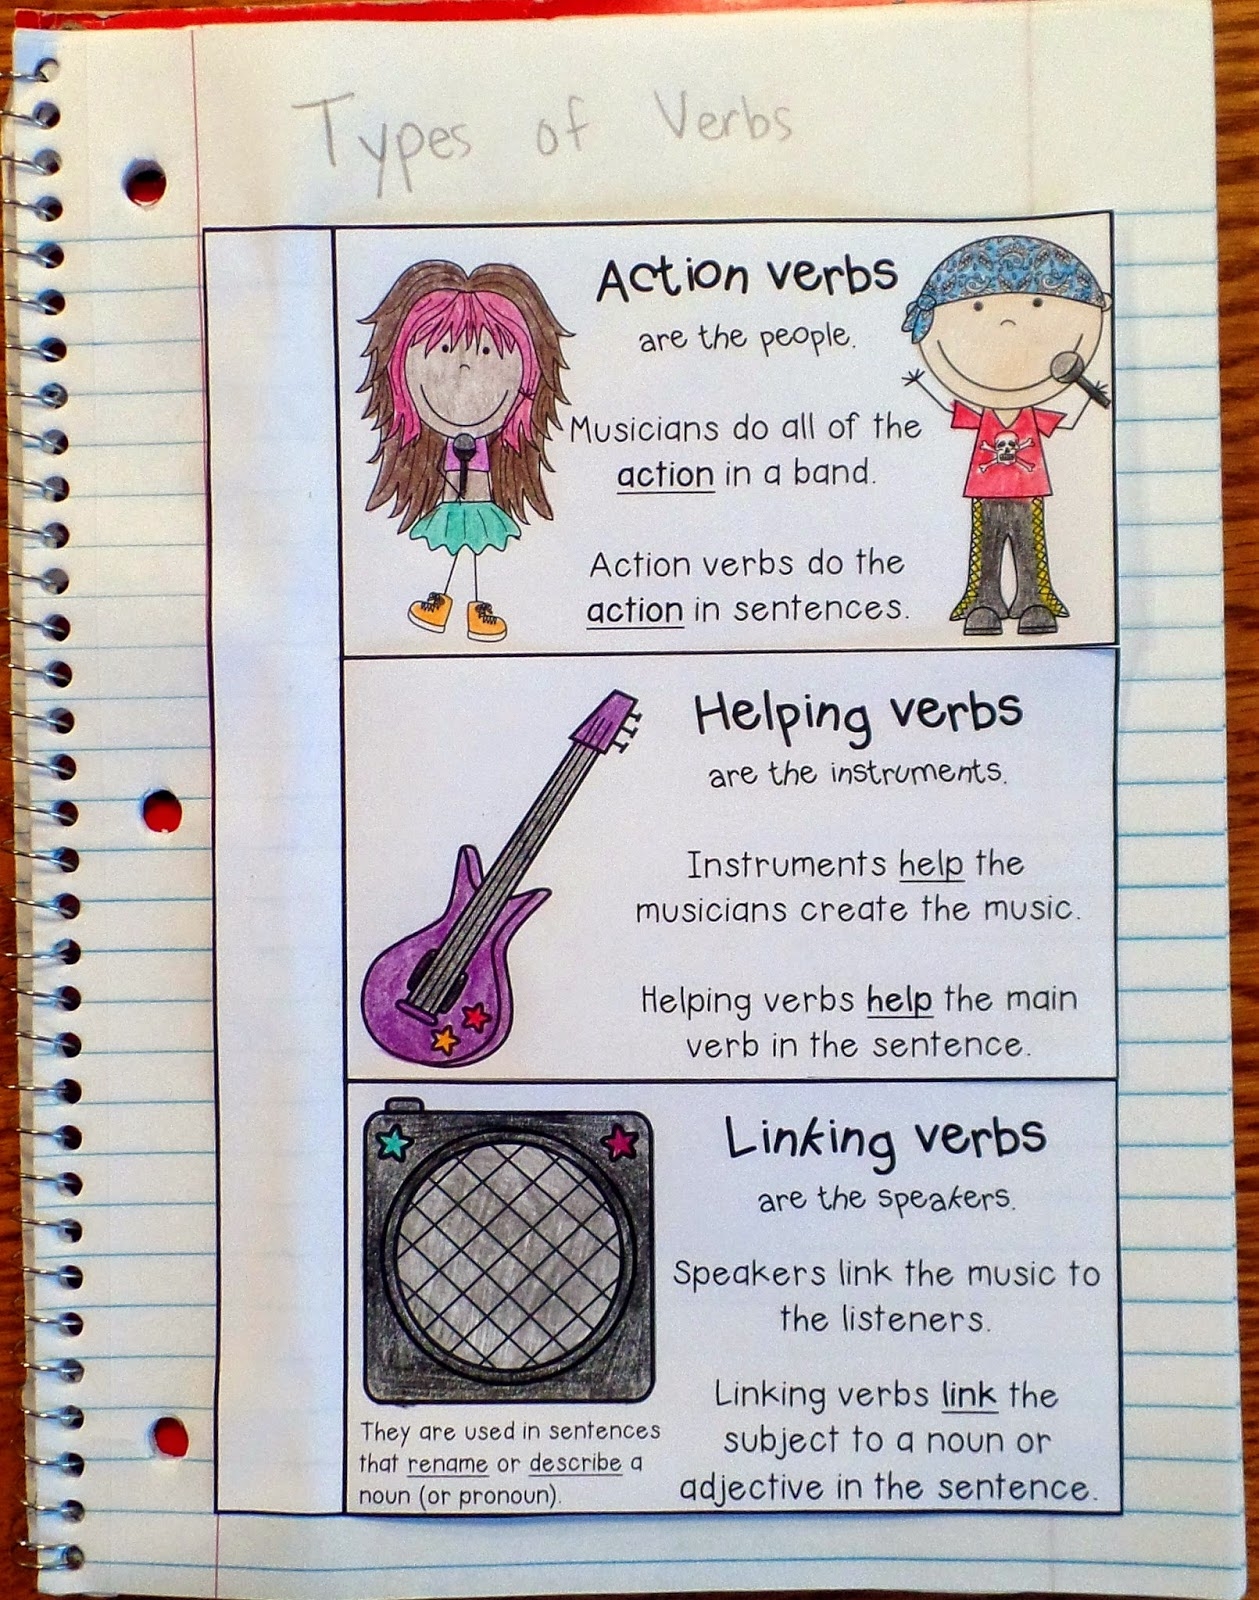 Types of Verbs
Action verbs
are the people.
Musicians do all of the
action in a band.
Action verbs do the
action in sentences.
Helping verbs
are the instruments.
Instruments help the
musicians create the music.
Helping verbs help the main
verb in the sentence.
Linking verbs
are the speakers.
Speakers link the music to
the listeners.
Linking verbs link the
subject to a noun or
adjective in the sentence.
They are used in sentences
that rename or describe a
noun (or pronoun).